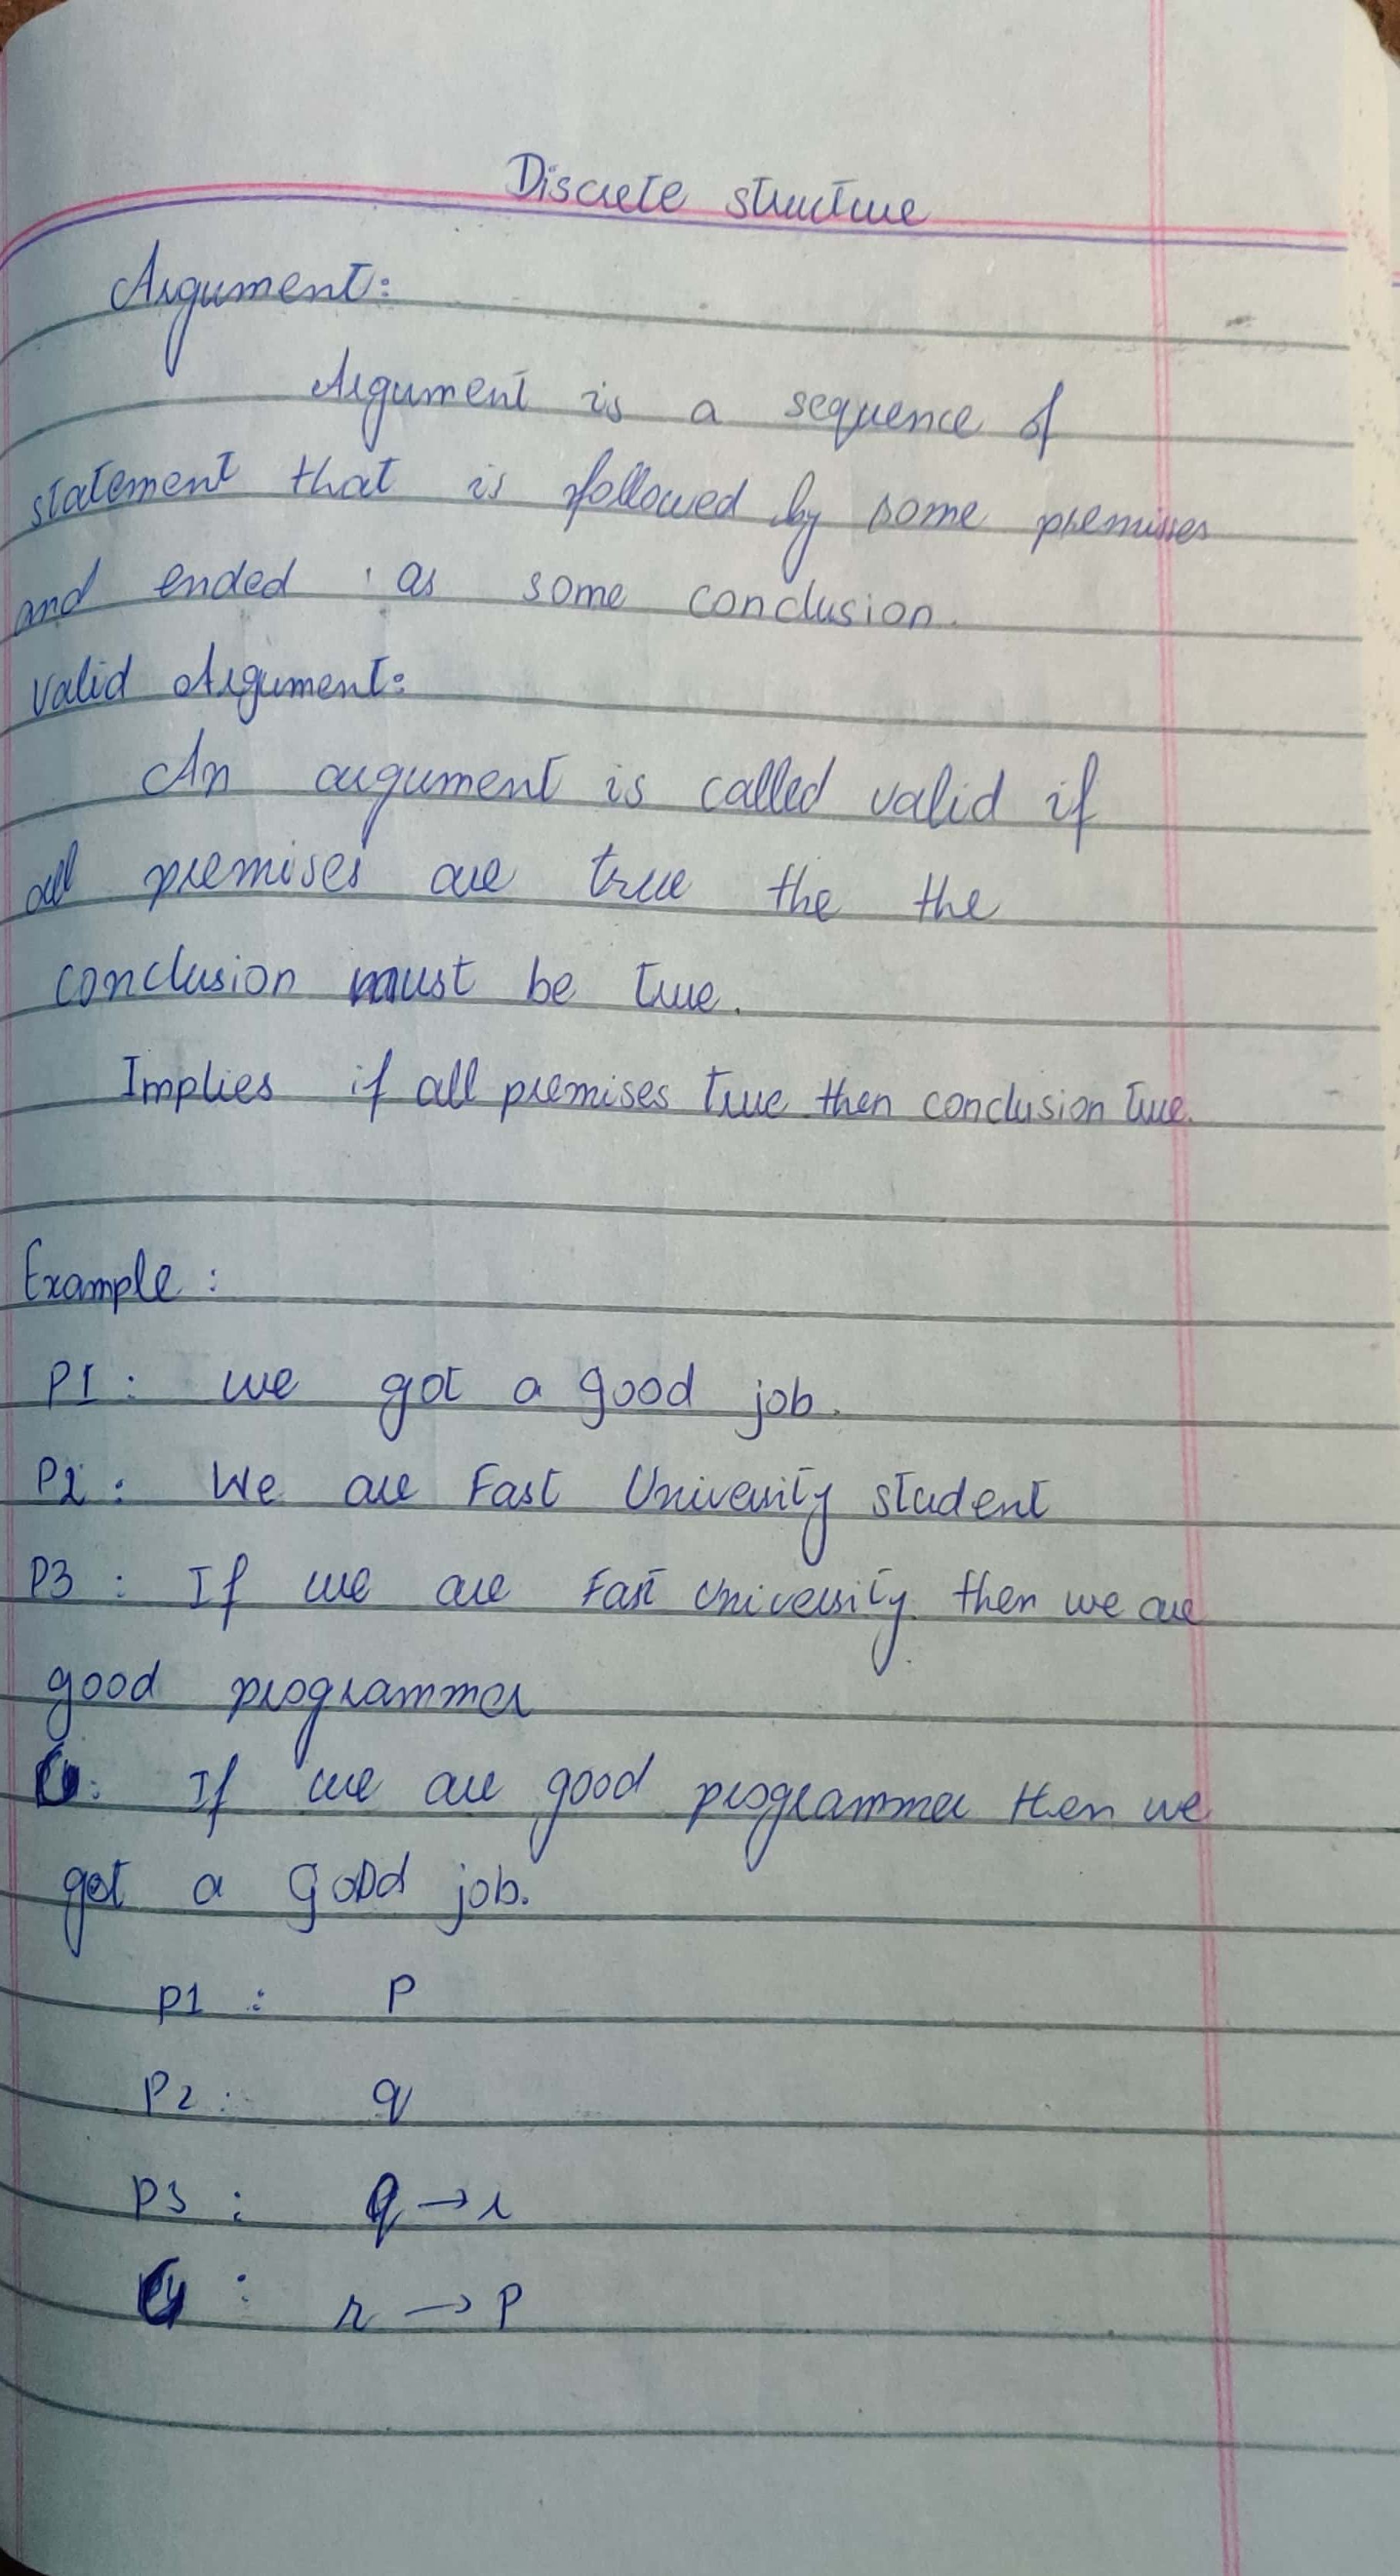 Discrete structure
Argument:
Argument is a sequence of
statement that is followed by some premises
and ended as some conclusion.
Valid Argument:
An argument is called valid if
all premises are true the the
conclusion must be true.
Implies if all premises true then conclusion true.
Example :
P1 : we got a good job.
P2 : We are Fast University student
P3 : If we are Fast University then we are
good programmer
C : If we are good programmer then we
got a good job.
P1 : P
P2 : q
P3 : q → r
C : r → P